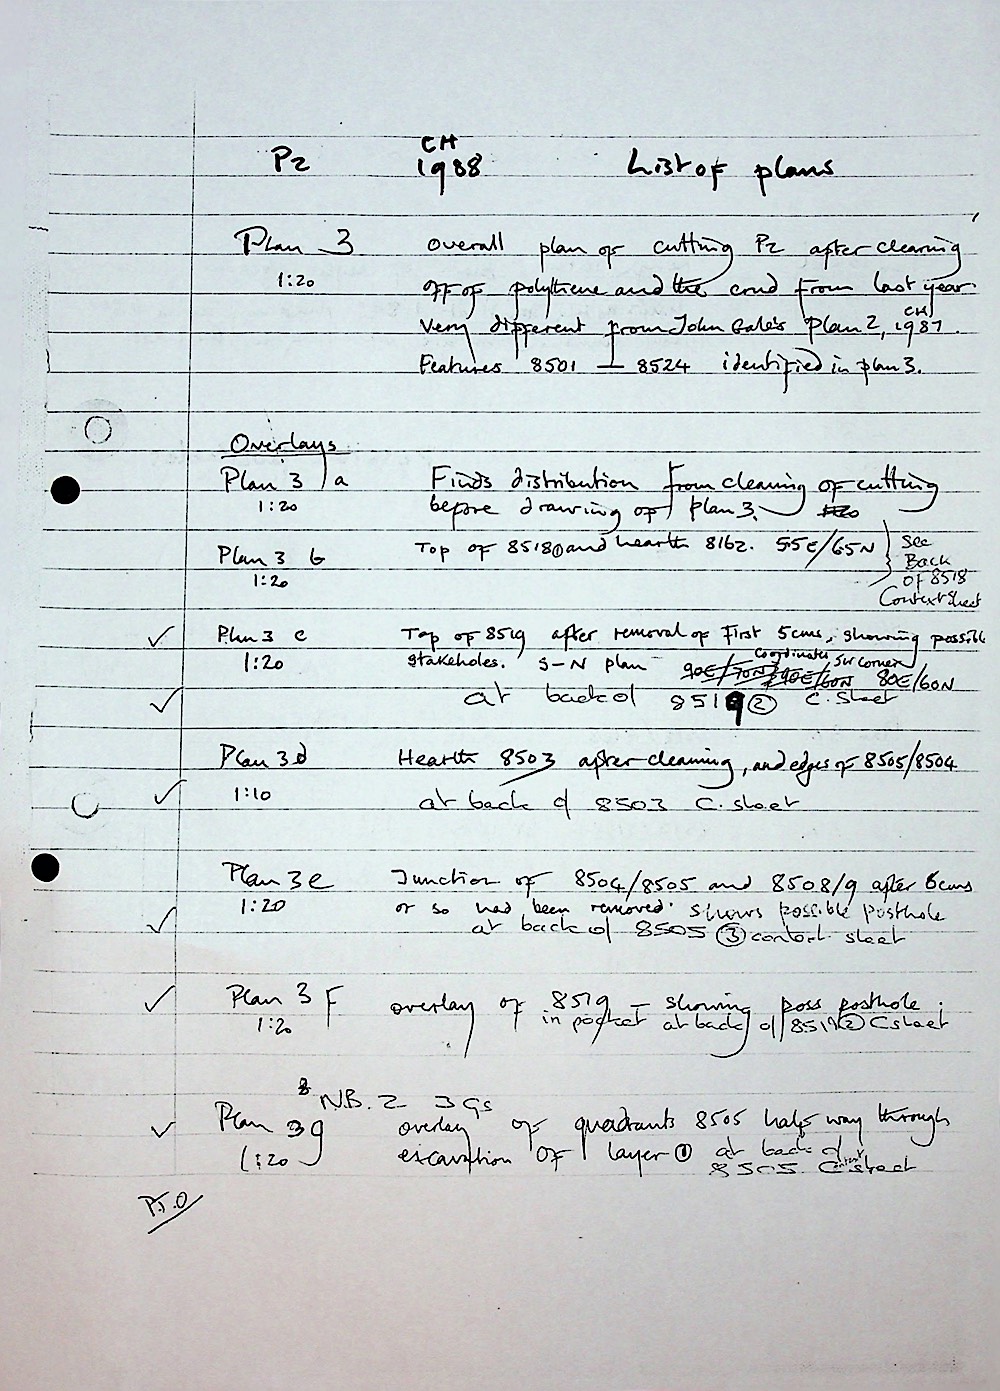 CH
P2 1988 List of plans
Plan 3 overall plan of cutting P2 after cleaning
1:20 off of polythene and the crud from last year.
Very different from John Gale's Plan 2, CH 1987.
Features 8501 — 8524 identified in plan 3.
Overlays
Plan 3 a Finds distribution from cleaning of cutting
1:20 before drawing of plan 3.
Plan 3 b Top of 8518① and hearth 8162. 55E/65N } See
1:20 Back
of 8518
Context sheet
✓ Plan 3 c Top of 8519 after removal of first 5cms, showing possible
1:20 stakeholes. S-N plan Coordinates SW corner
90E/70N 90E/60N 80E/60N
✓ at back of 8519② C. Sheet
Plan 3d Hearth 8503 after cleaning, and edges of 8505/8504
✓ 1:10 at back of 8503 C. sheet
Plan 3e Junction of 8504/8505 and 8508/9 after 6cms
1:20 or so had been removed. Shows possible Posthole
✓ at back of 8505 ③ context sheet
✓ Plan 3 F overlay of 8519 — showing poss posthole.
1:20 in pocket at back of 8519② C sheet
N.B. 2 3Gs
✓ Plan 3g overlay of quadrants 8505 half way through
1:20 excavation of layer ① at back of
8505. Context sheet
P.T.O